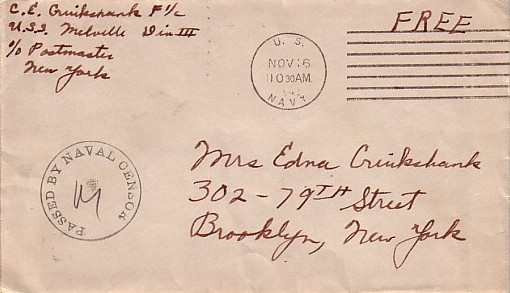 C.E. Cruikshank F 1/c
U.S.S. Melville Div III
c/o Postmaster
New York
FREE
U. S.
NOV 16
10 30 AM
NAVY
PASSED BY NAVAL CENSOR
Mrs Edna Cruikshank
302-79TH Street
Brooklyn, New York